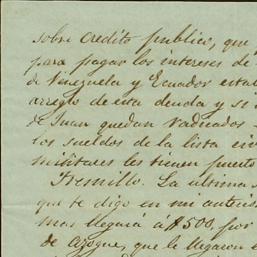 sobre credito publico, que
para pagar los intereses de
de Venezuela y Ecuador estab
arreglo de esta deuda y si
de Juan quedan
los sueldos de la lista civ
militares les tienen puesto
Tremillo. La ultima
que te digo en mi anterior
mas llegará á $500, por
de azogue, que le llegaron